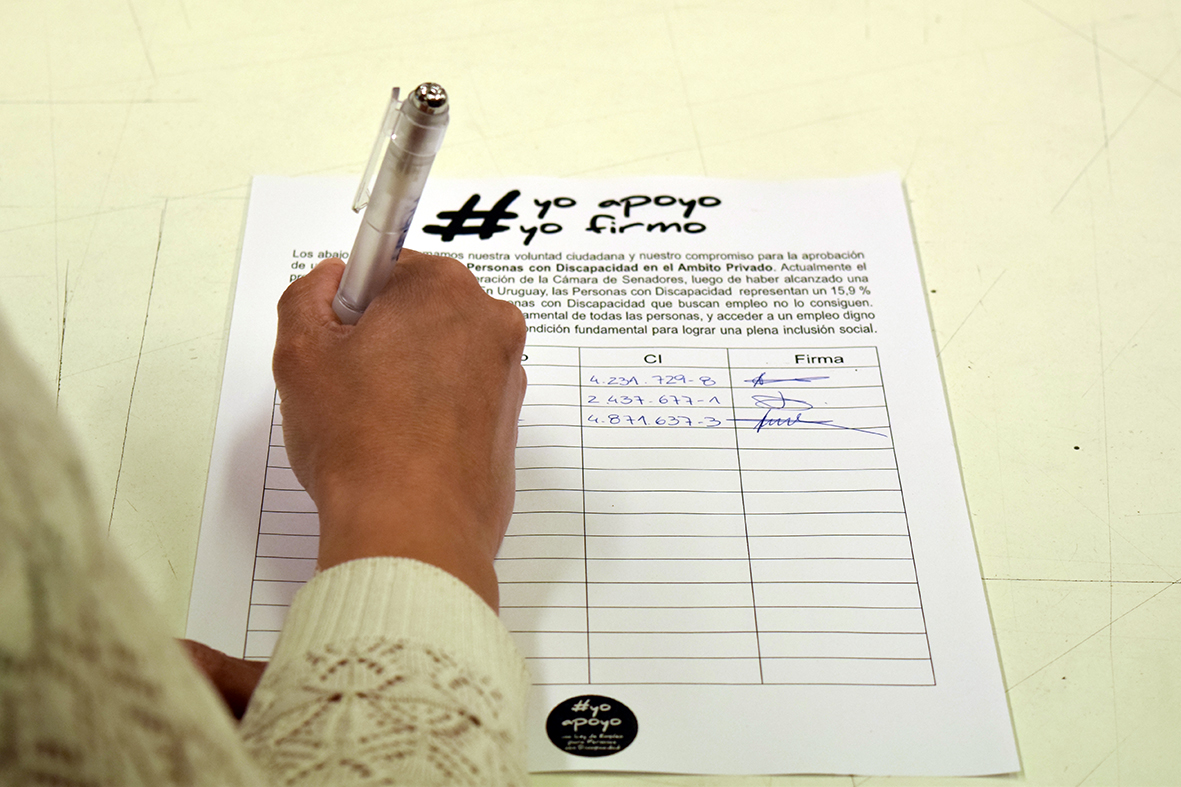 # yo apoyo
yo firmo
Los abajo mamos nuestra voluntad ciudadana y nuestro compromiso para la aprobación
de Personas con Discapacidad en el Ambito Privado. Actualmente el
eración de la Cámara de Senadores, luego de haber alcanzado una
Uruguay, las Personas con Discapacidad representan un 15,9 %
nas con Discapacidad que buscan empleo no lo consiguen.
amental de todas las personas, y acceder a un empleo digno
ondición fundamental para lograr una plena inclusión social.
CI Firma
4.231.729-8
2.437.677-1
4.871.637-3
#yo
apoyo
Ley de Empleo
para Personas
con Discapacidad